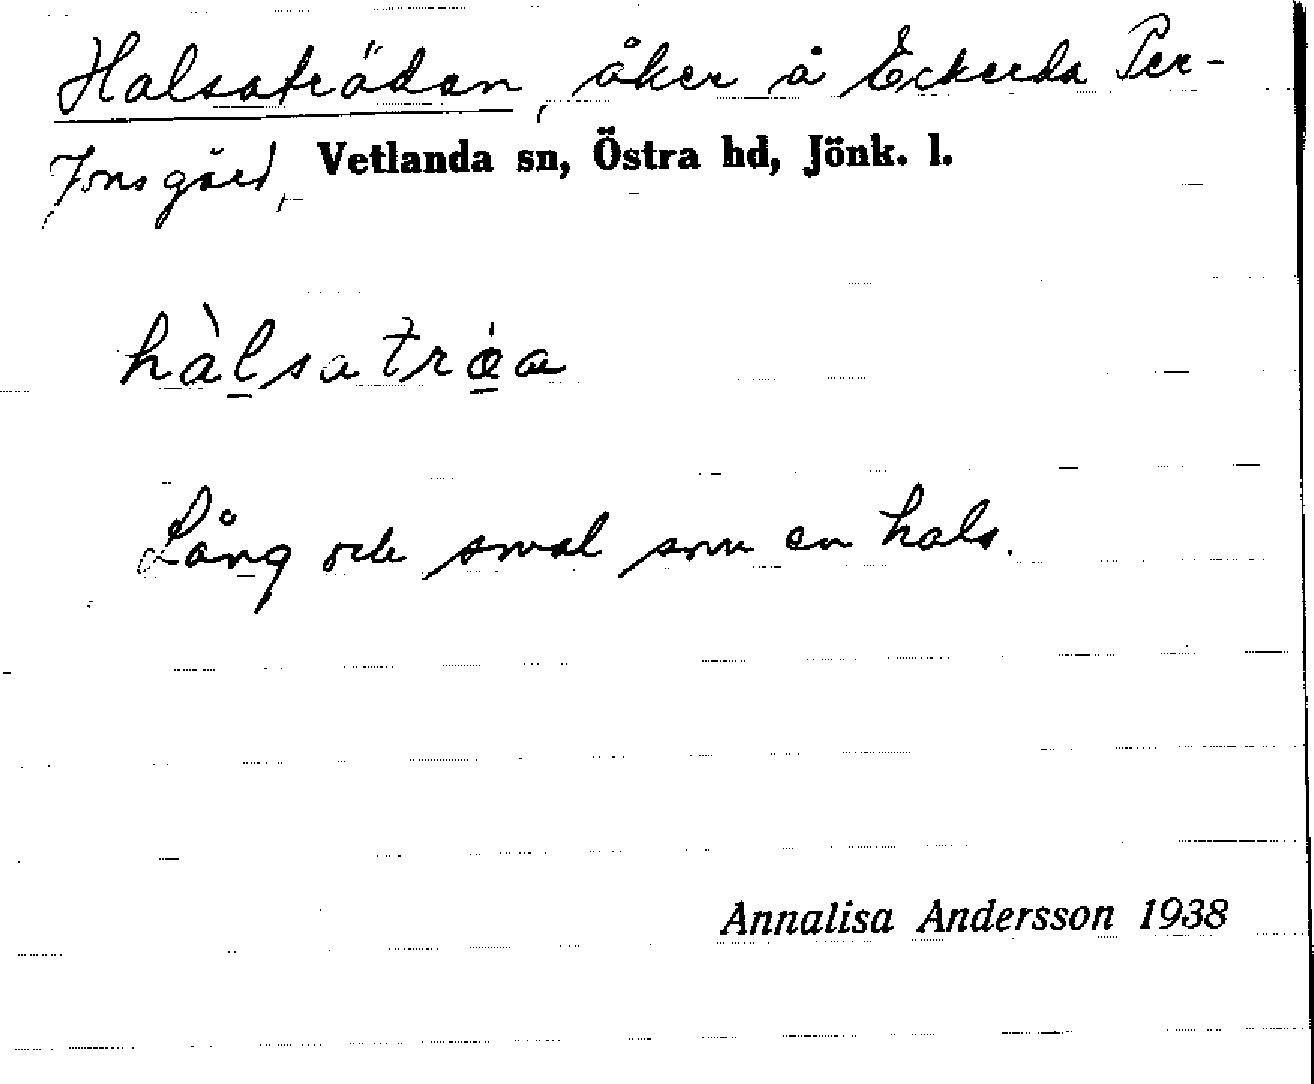 Halsaträdan, åker å Eckerda Per-
Jonsgård, Vetlanda sn, Östra hd, Jönk. l.
hàlsatræ̀a
Lång och smal som en hals.
Annalisa Andersson 1938